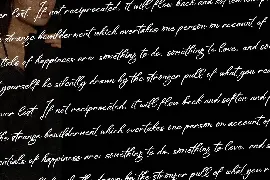 er lost. If not reciprocated, it will flow back and soften and
e strange bewilderment which overtakes one person on account of
ntials of happiness are: something to do, something to love, and som
yourself be silently drawn by the stronger pull of what you rea
ver lost. If not reciprocated, it will flow back and soften and p
the strange bewilderment which overtakes one person on account of
sentials of happiness are: something to do, something to love, and so
be silently drawn by the stronger pull of what you r